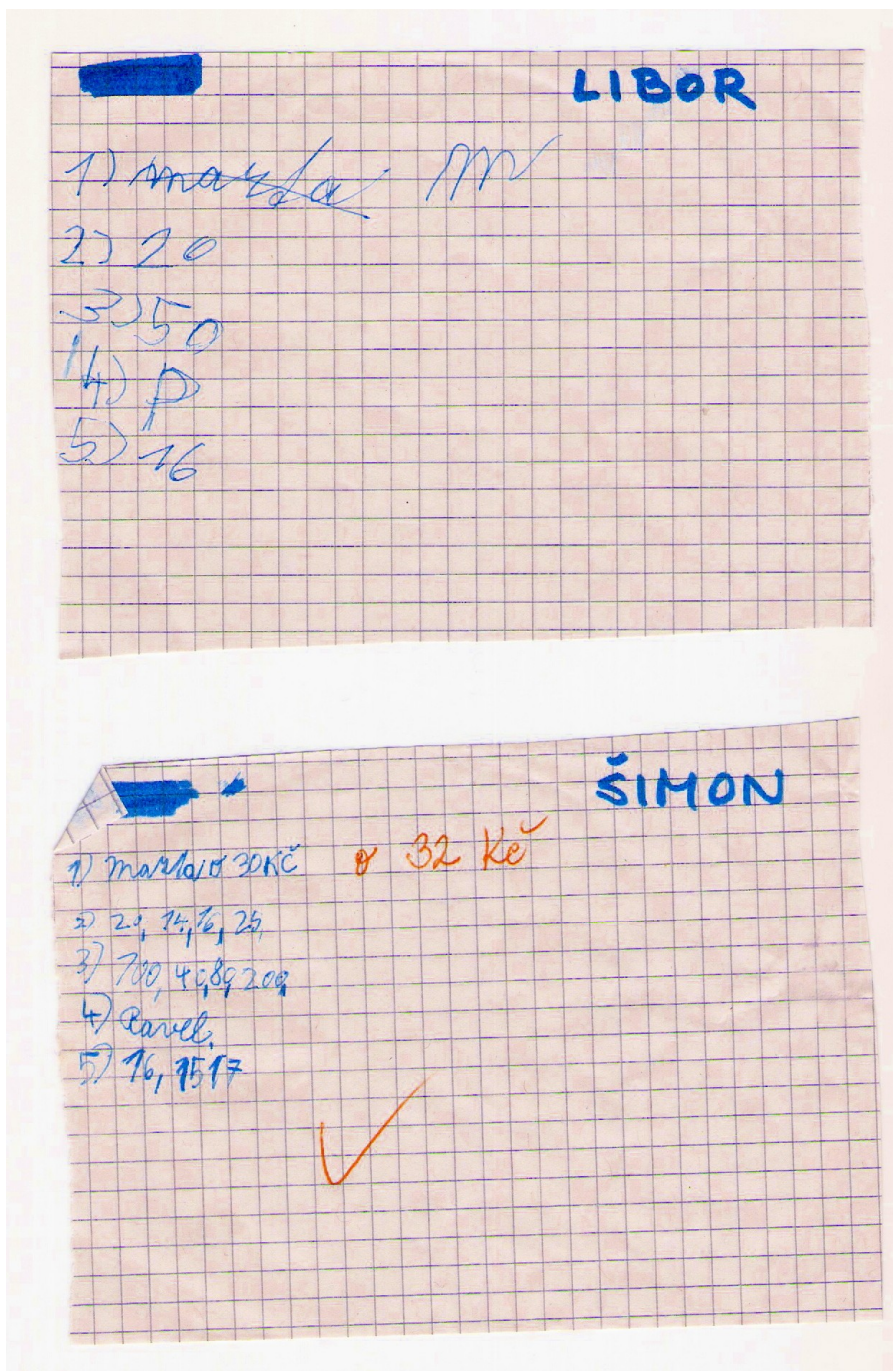 LIBOR
1) marta M
2) 20
3) 50
4) P
5) 16
ŠIMON
1) Marta o 30 Kč o 32 Kč
2) 20, 14, 16, 25,
3) 100, 40, 80, 200,
4) Pavel.
5) 16, 15 17